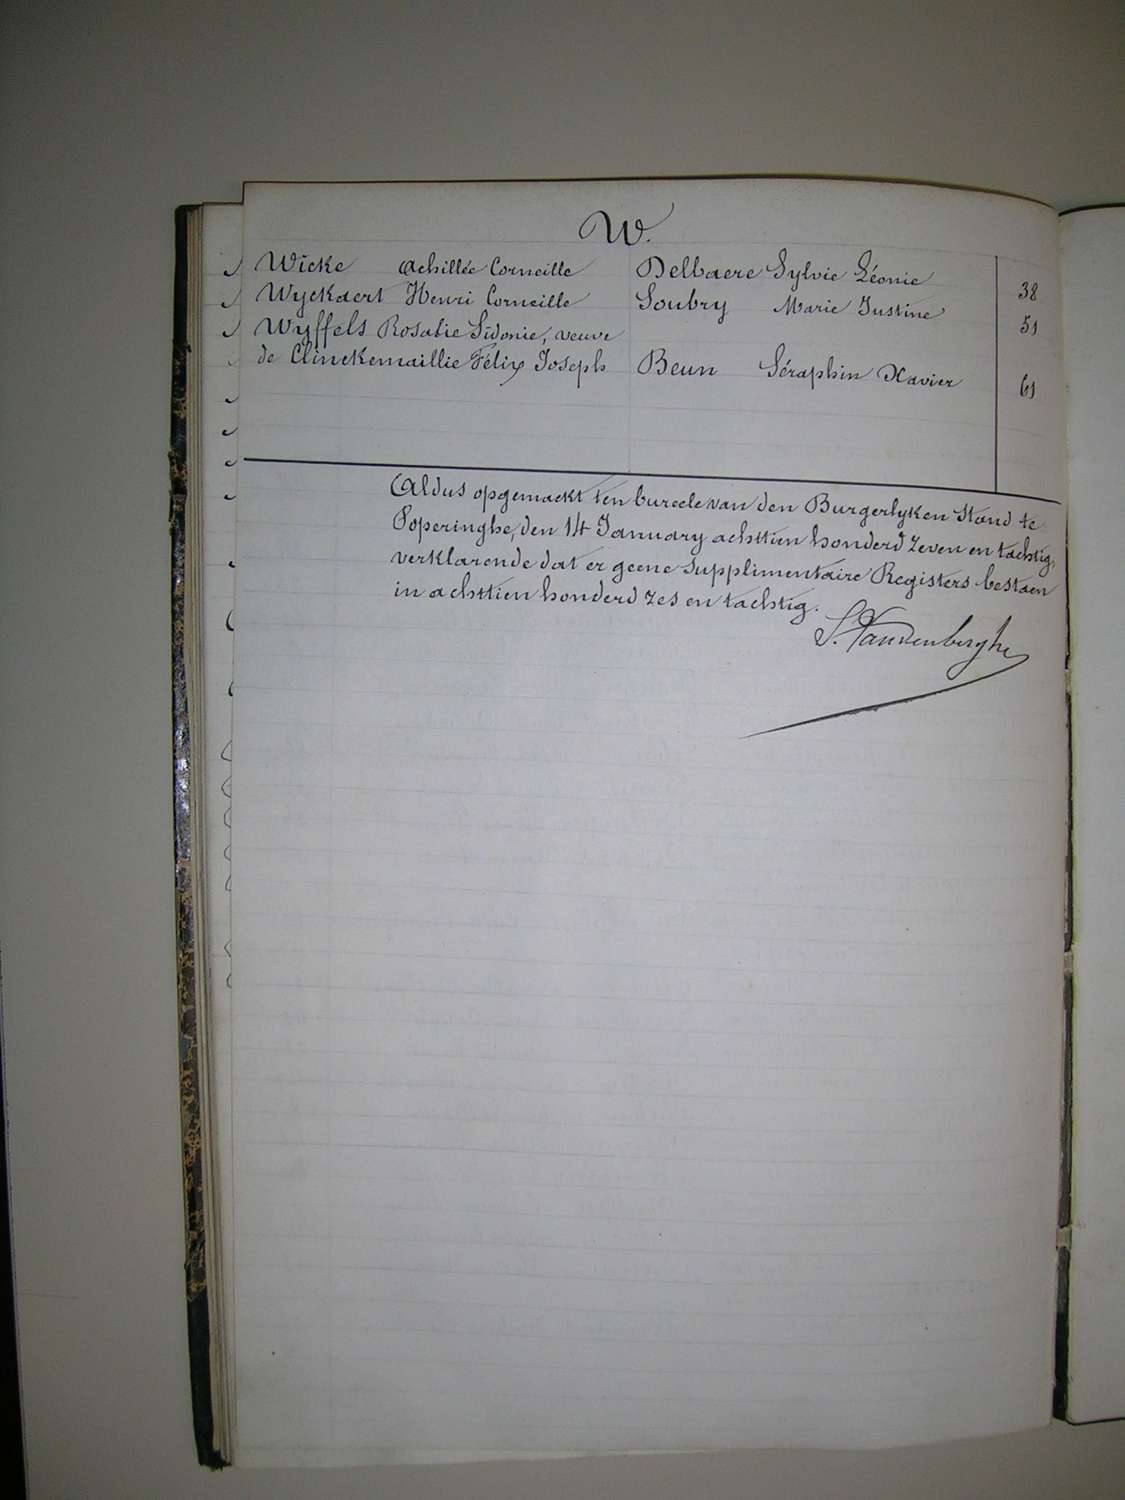 W.
Wicke Achillée Corneille Delbaere Sylvie Léonie 38
Wyckaert Henri Corneille Soubry Marie Justine 51
Wyffels Rosalie Sidonie, veuve
de Clinckemaillie Félix Joseph Beun Séraphin Xavier 61
Aldus opgemaekt ten bureele van den Burgerlyken Stand te
Poperinghe, den 14 January achttien honderd zeven en tachtig,
verklarende dat er geene supplimentaire Registers bestaen
in achttien honderd zes en tachtig.
S. Vandenberghe